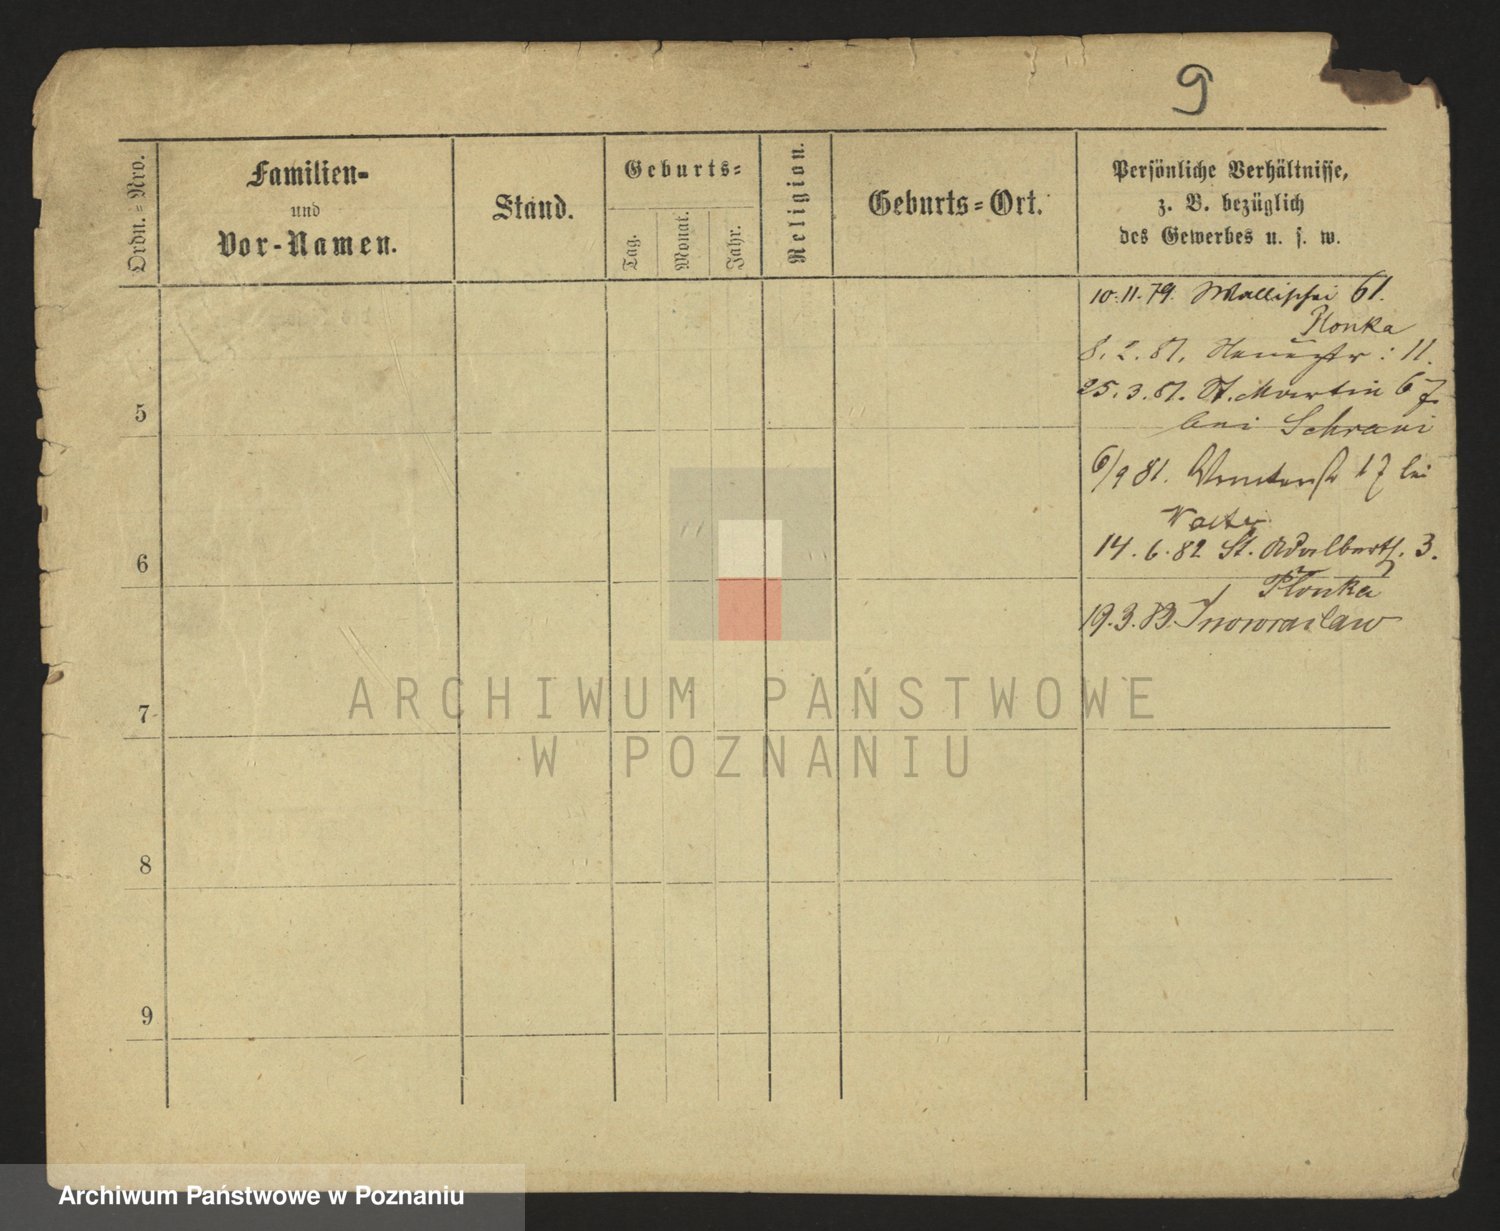 9
Ordn.=Nro.
Familien-
und
Vor-Namen.
Stand.
Geburts=
Tag.
Monat.
Jahr.
Religion.
Geburts=Ort.
Persönliche Verhältnisse,
z. B. bezüglich
des Gewerbes u. s. w.
10.11.79. Wallischei 61.
Plonka
8.2.81. : 11.
25.3.81. St. Martin 67
bei
6/9 81. 17 bei
14.6.82 St. Adalbertst. 3.
Plonka
19.3.83. Inowraclaw
5
6
7
8
9
ARCHIWUM PAŃSTWOWE
W POZNANIU
Archiwum Państwowe w Poznaniu